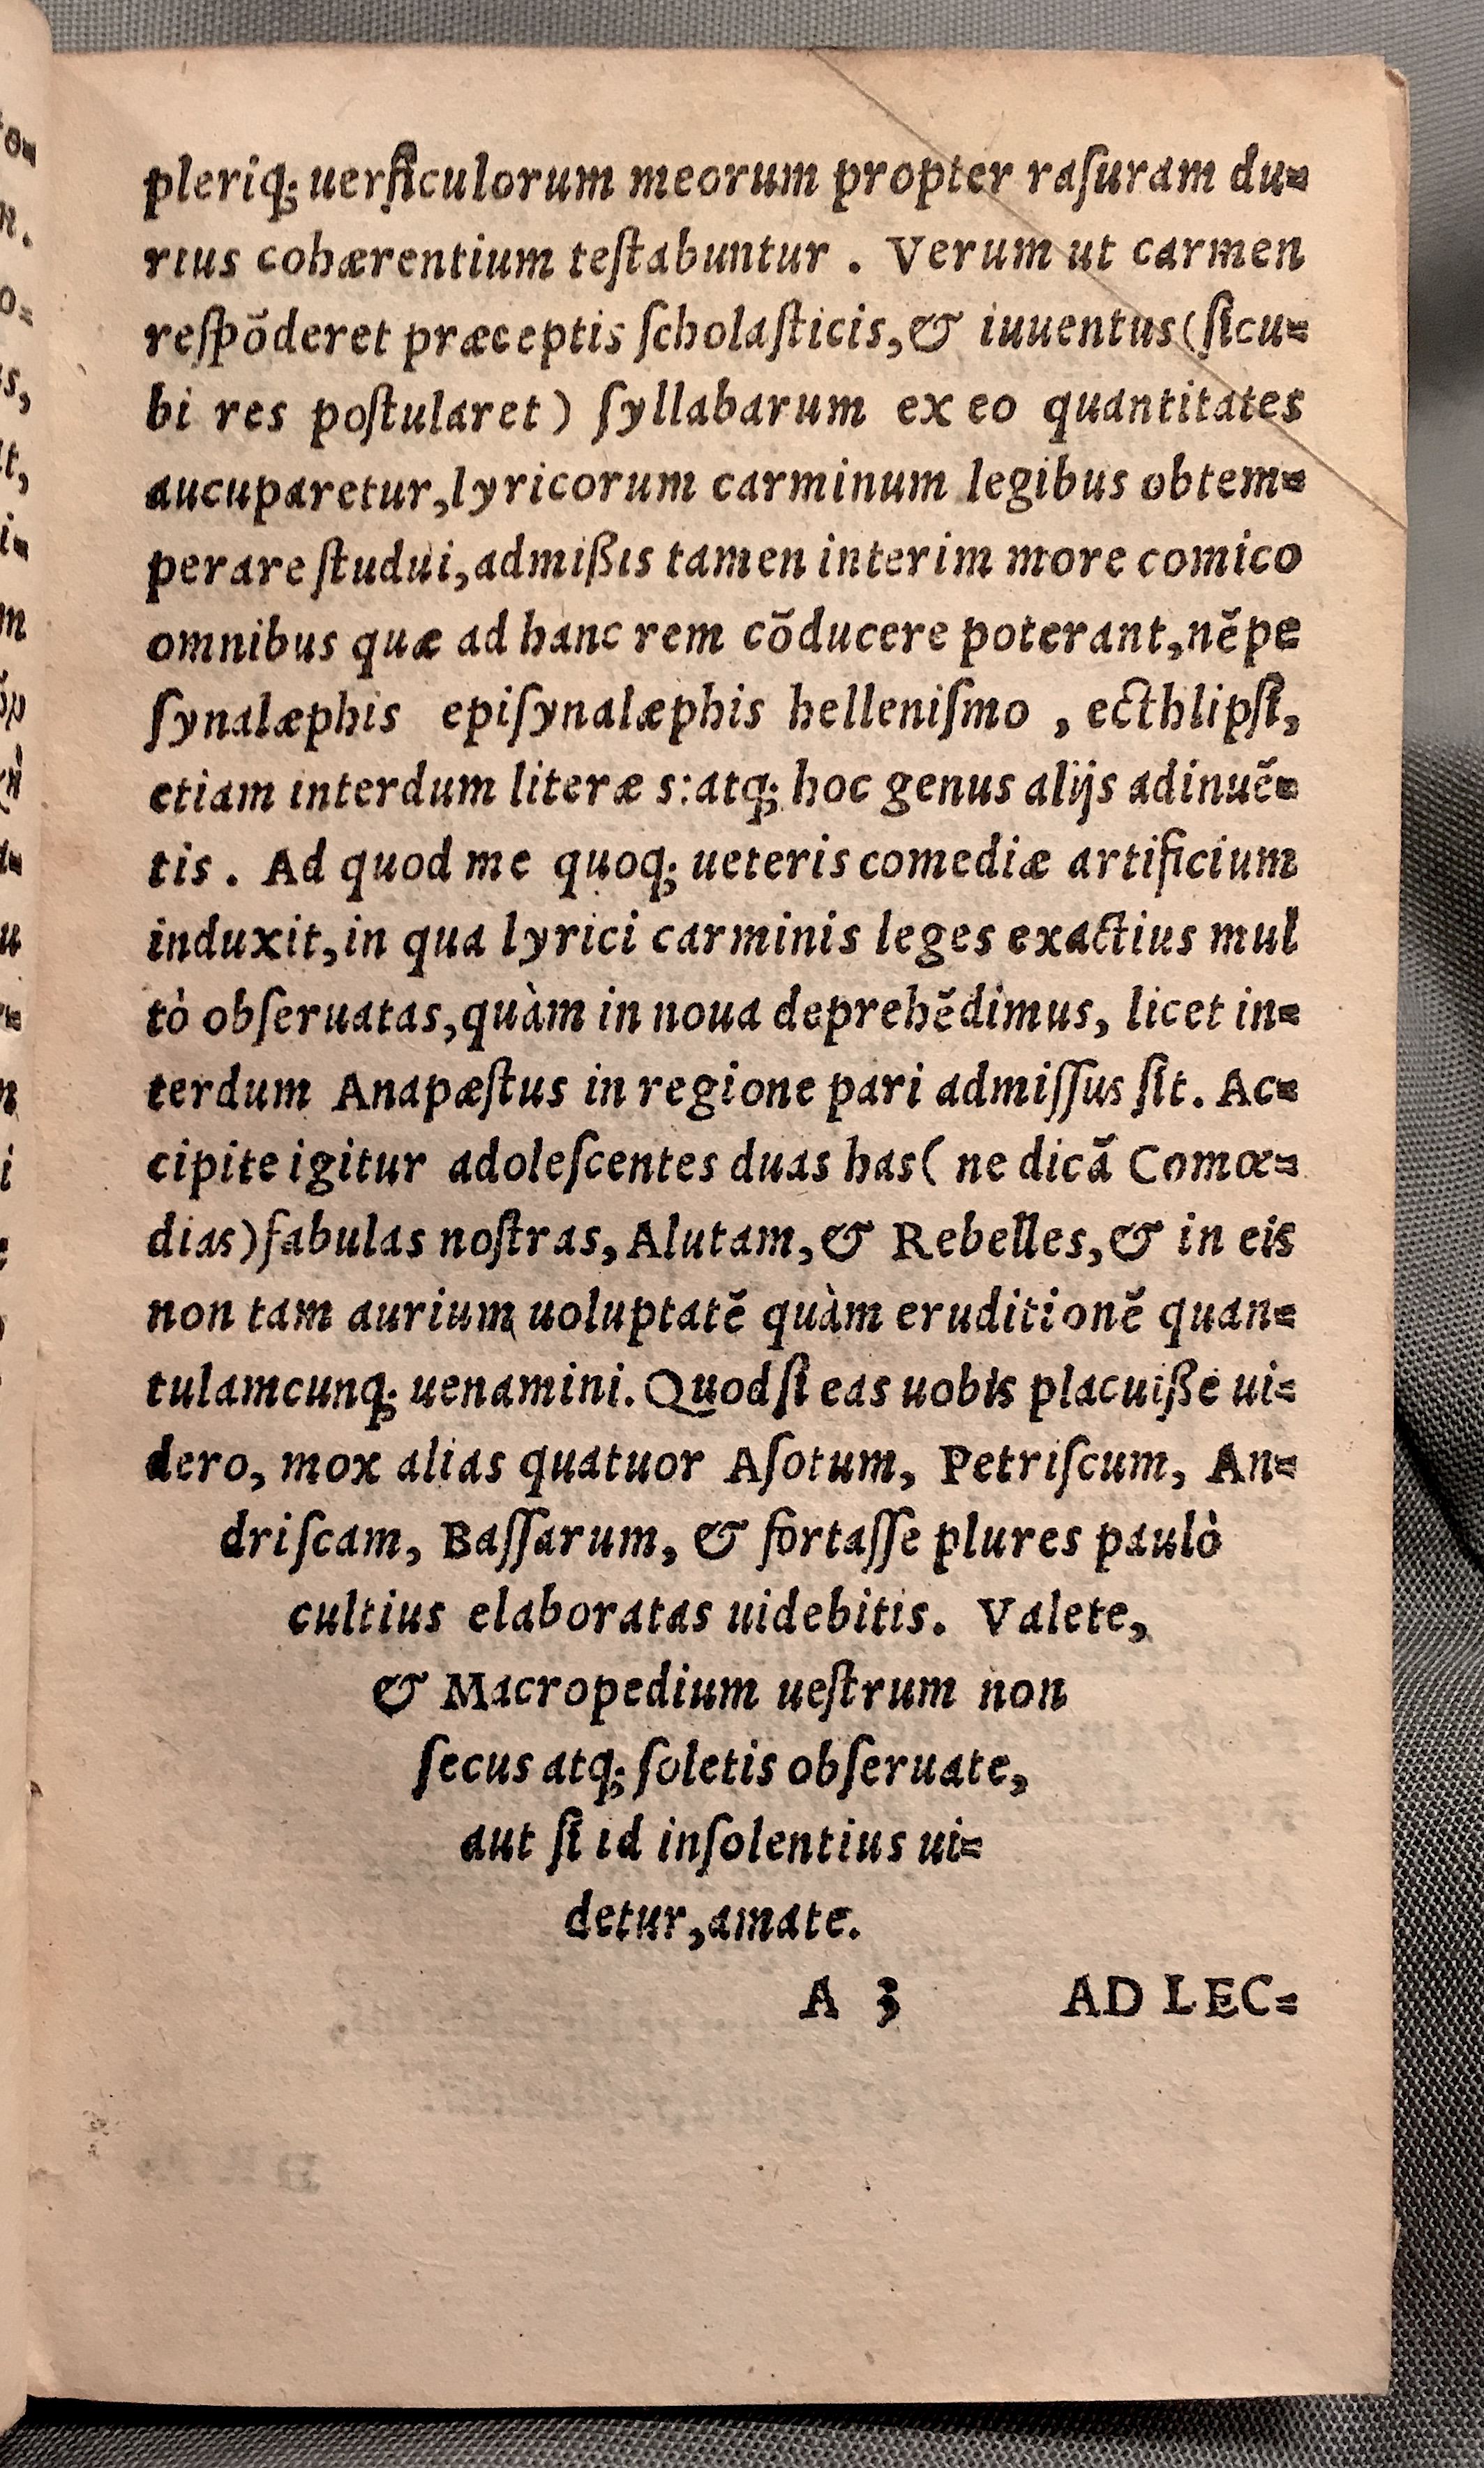 pleriq; uerſiculorum meorum propter raſuram du=
rius cohærentium teſtabuntur . Verum ut carmen
reſpõderet præceptis ſcholaſticis, & iuuentus (ſicu=
bi res poſtularet) ſyllabarum ex eo quantitates
aucuparetur, lyricorum carminum legibus obtem=
perare ſtudui, admißis tamen interim more comico
omnibus quæ ad hanc rem cõducere poterant, nẽpe
ſynalæphis epiſynalæphis helleniſmo , ecthlipſi,
etiam interdum literæ s: atq; hoc genus alijs adinuẽ=
tis . Ad quod me quoq; ueteris comediæ artificium
induxit, in qua lyrici carminis leges exactius mul
tò obſeruatas, quàm in noua deprehẽdimus, licet in=
terdum Anapæſtus in regione pari admiſſus ſit. Ac=
cipite igitur adoleſcentes duas has ( ne dicã Comœ=
dias) fabulas noſtras, Alutam, & Rebelles, & in eis
non tam aurium uoluptatẽ quàm eruditionẽ quan=
tulamcunq; uenamini. Quod ſi eas uobis placuiße ui=
dero, mox alias quatuor Aſotum, Petriſcum, An=
driſcam, Baſſarum, & fortaſſe plures paulò
cultius elaboratas uidebitis. Valete,
& Macropedium ueſtrum non
ſecus atq; ſoletis obſeruate,
aut ſi id inſolentius ui=
detur, amate.
A 3 AD LEC=